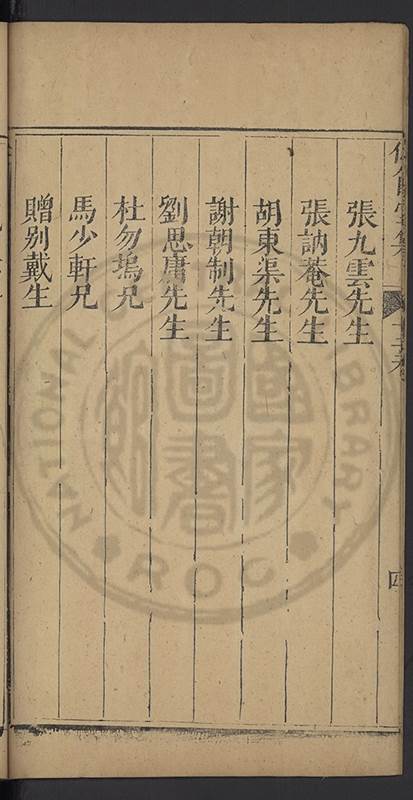 張九雲先生
張訥菴先生
胡東渠先生
謝朝制先生
劉思庸先生
杜勿塢兄
馬少軒兄
贈别戴生
四
國家圖書館
NATIONAL LIBRARY
ROC